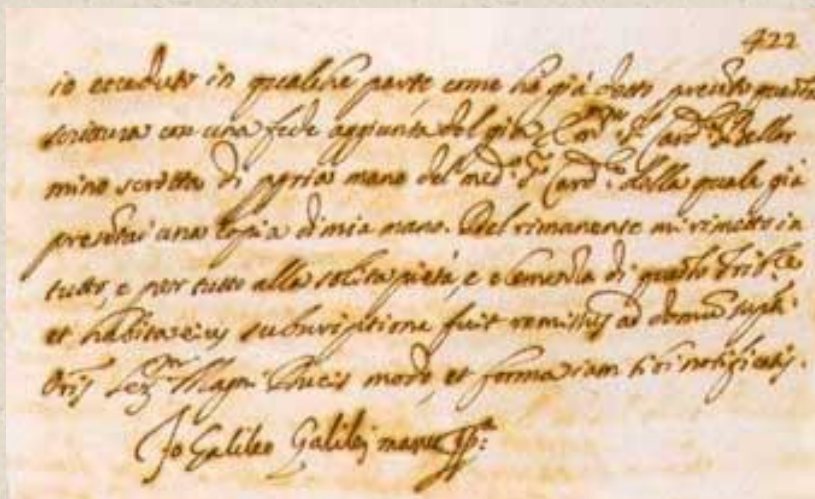 422
io ecceduto in qualche parte, come hò già detto presento questa
scrittura con una fede aggiunta del già Em.mo S.r Card.le Bellar
mino scritta di propria mano del med.o S.r Card.le dalla quale già
presentai una copia di mia mano. Del rimanente mi rimetto in
tutto, e per tutto alla solita pietà, e clemenza di questo Trib.le
et habita eius subscriptione fuit remissus ad domum supti.
Oris Ser.mi Magni Ducis modo, et forma iam sibi notificatis.
Io Galileo Galilei manu pp.a